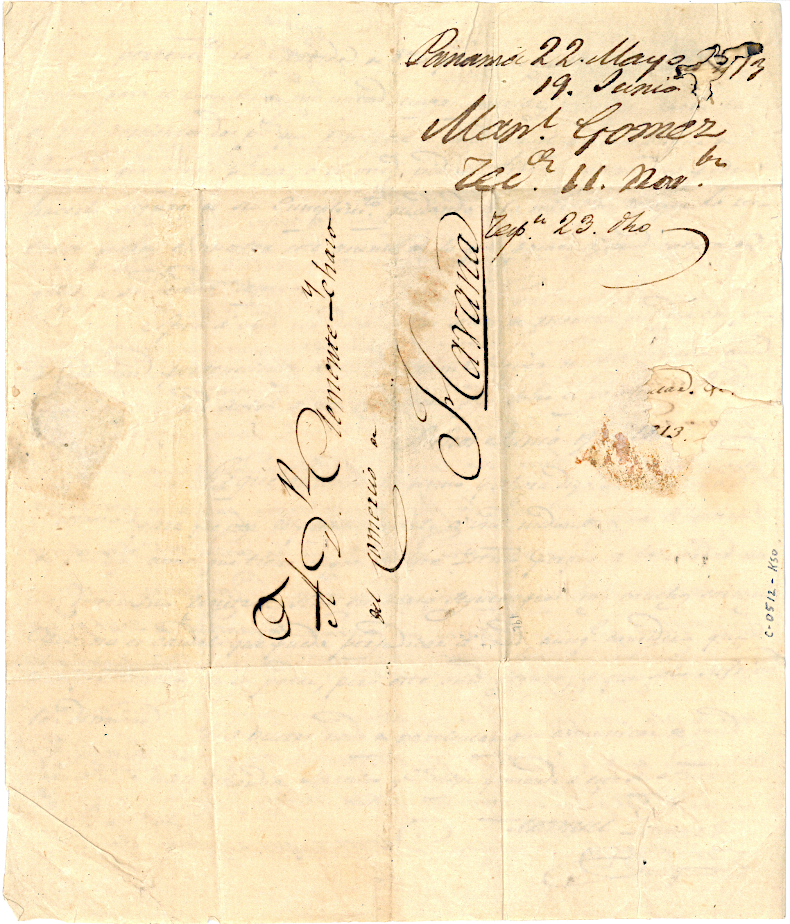 Panamá 22. Mayo
19. Junio
Man.l Gomez
Rec.da 11. Nov.bre
Resp.da 23. dho
A D.n Clemente Ychaso
del Comercio de
Havana
1813.
C-0512-K50